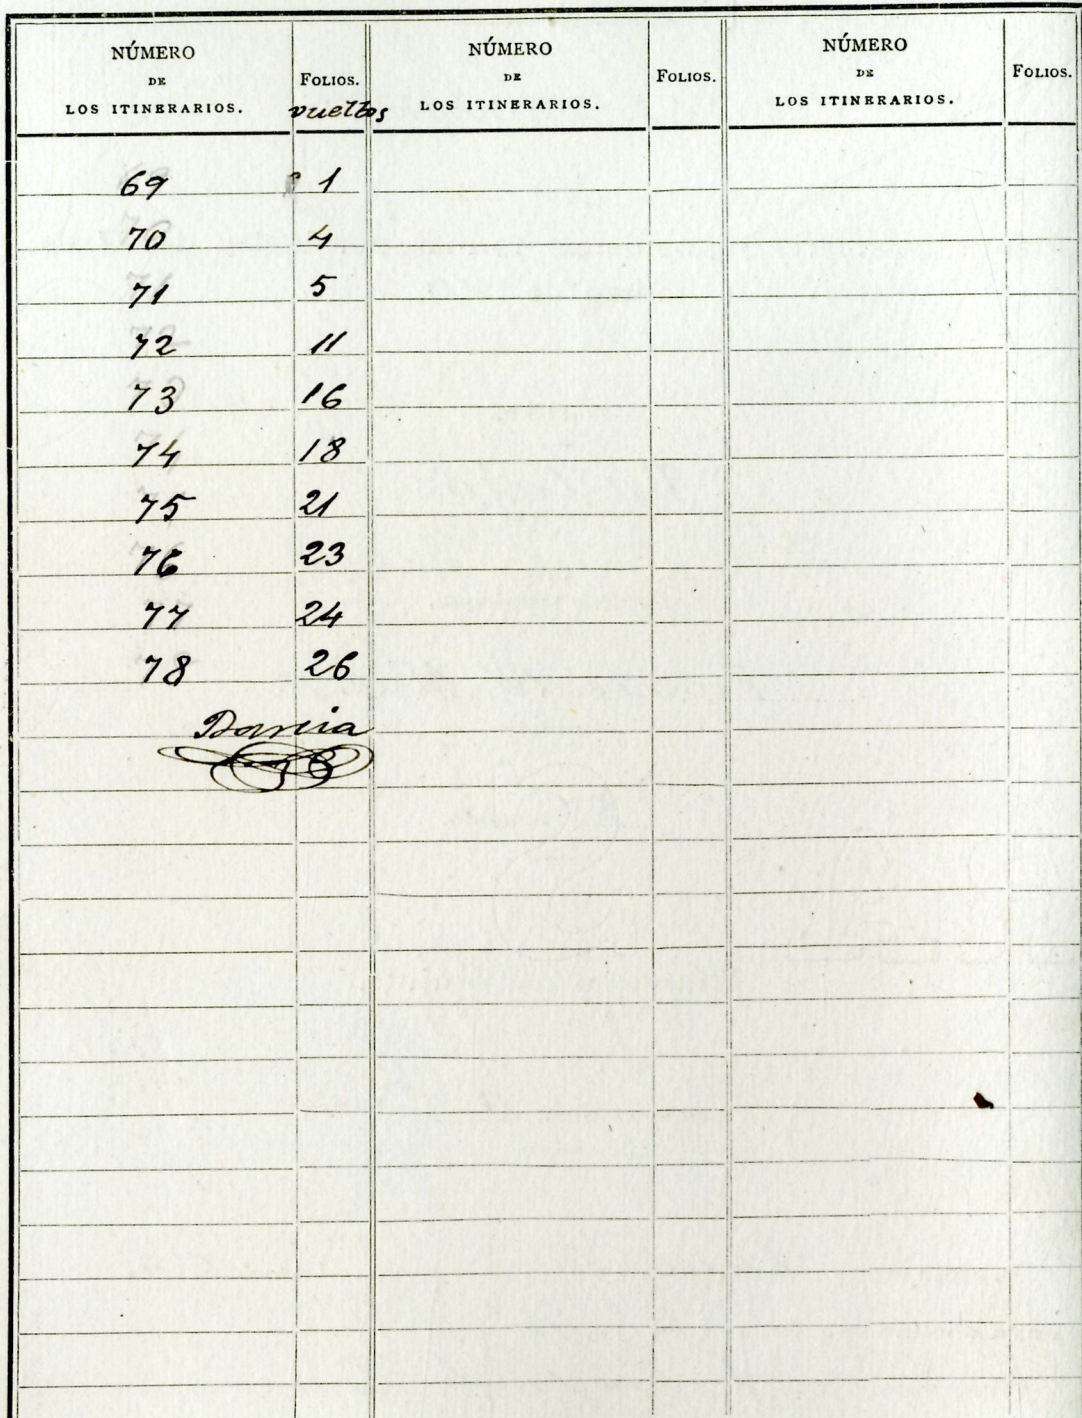 NÚMERO DE LOS ITINERARIOS. FOLIOS. NÚMERO DE LOS ITINERARIOS. FOLIOS. NÚMERO DE LOS ITINERARIOS. FOLIOS.
vueltos
69 1
70 4
71 5
72 11
73 16
74 18
75 21
76 23
77 24
78 26